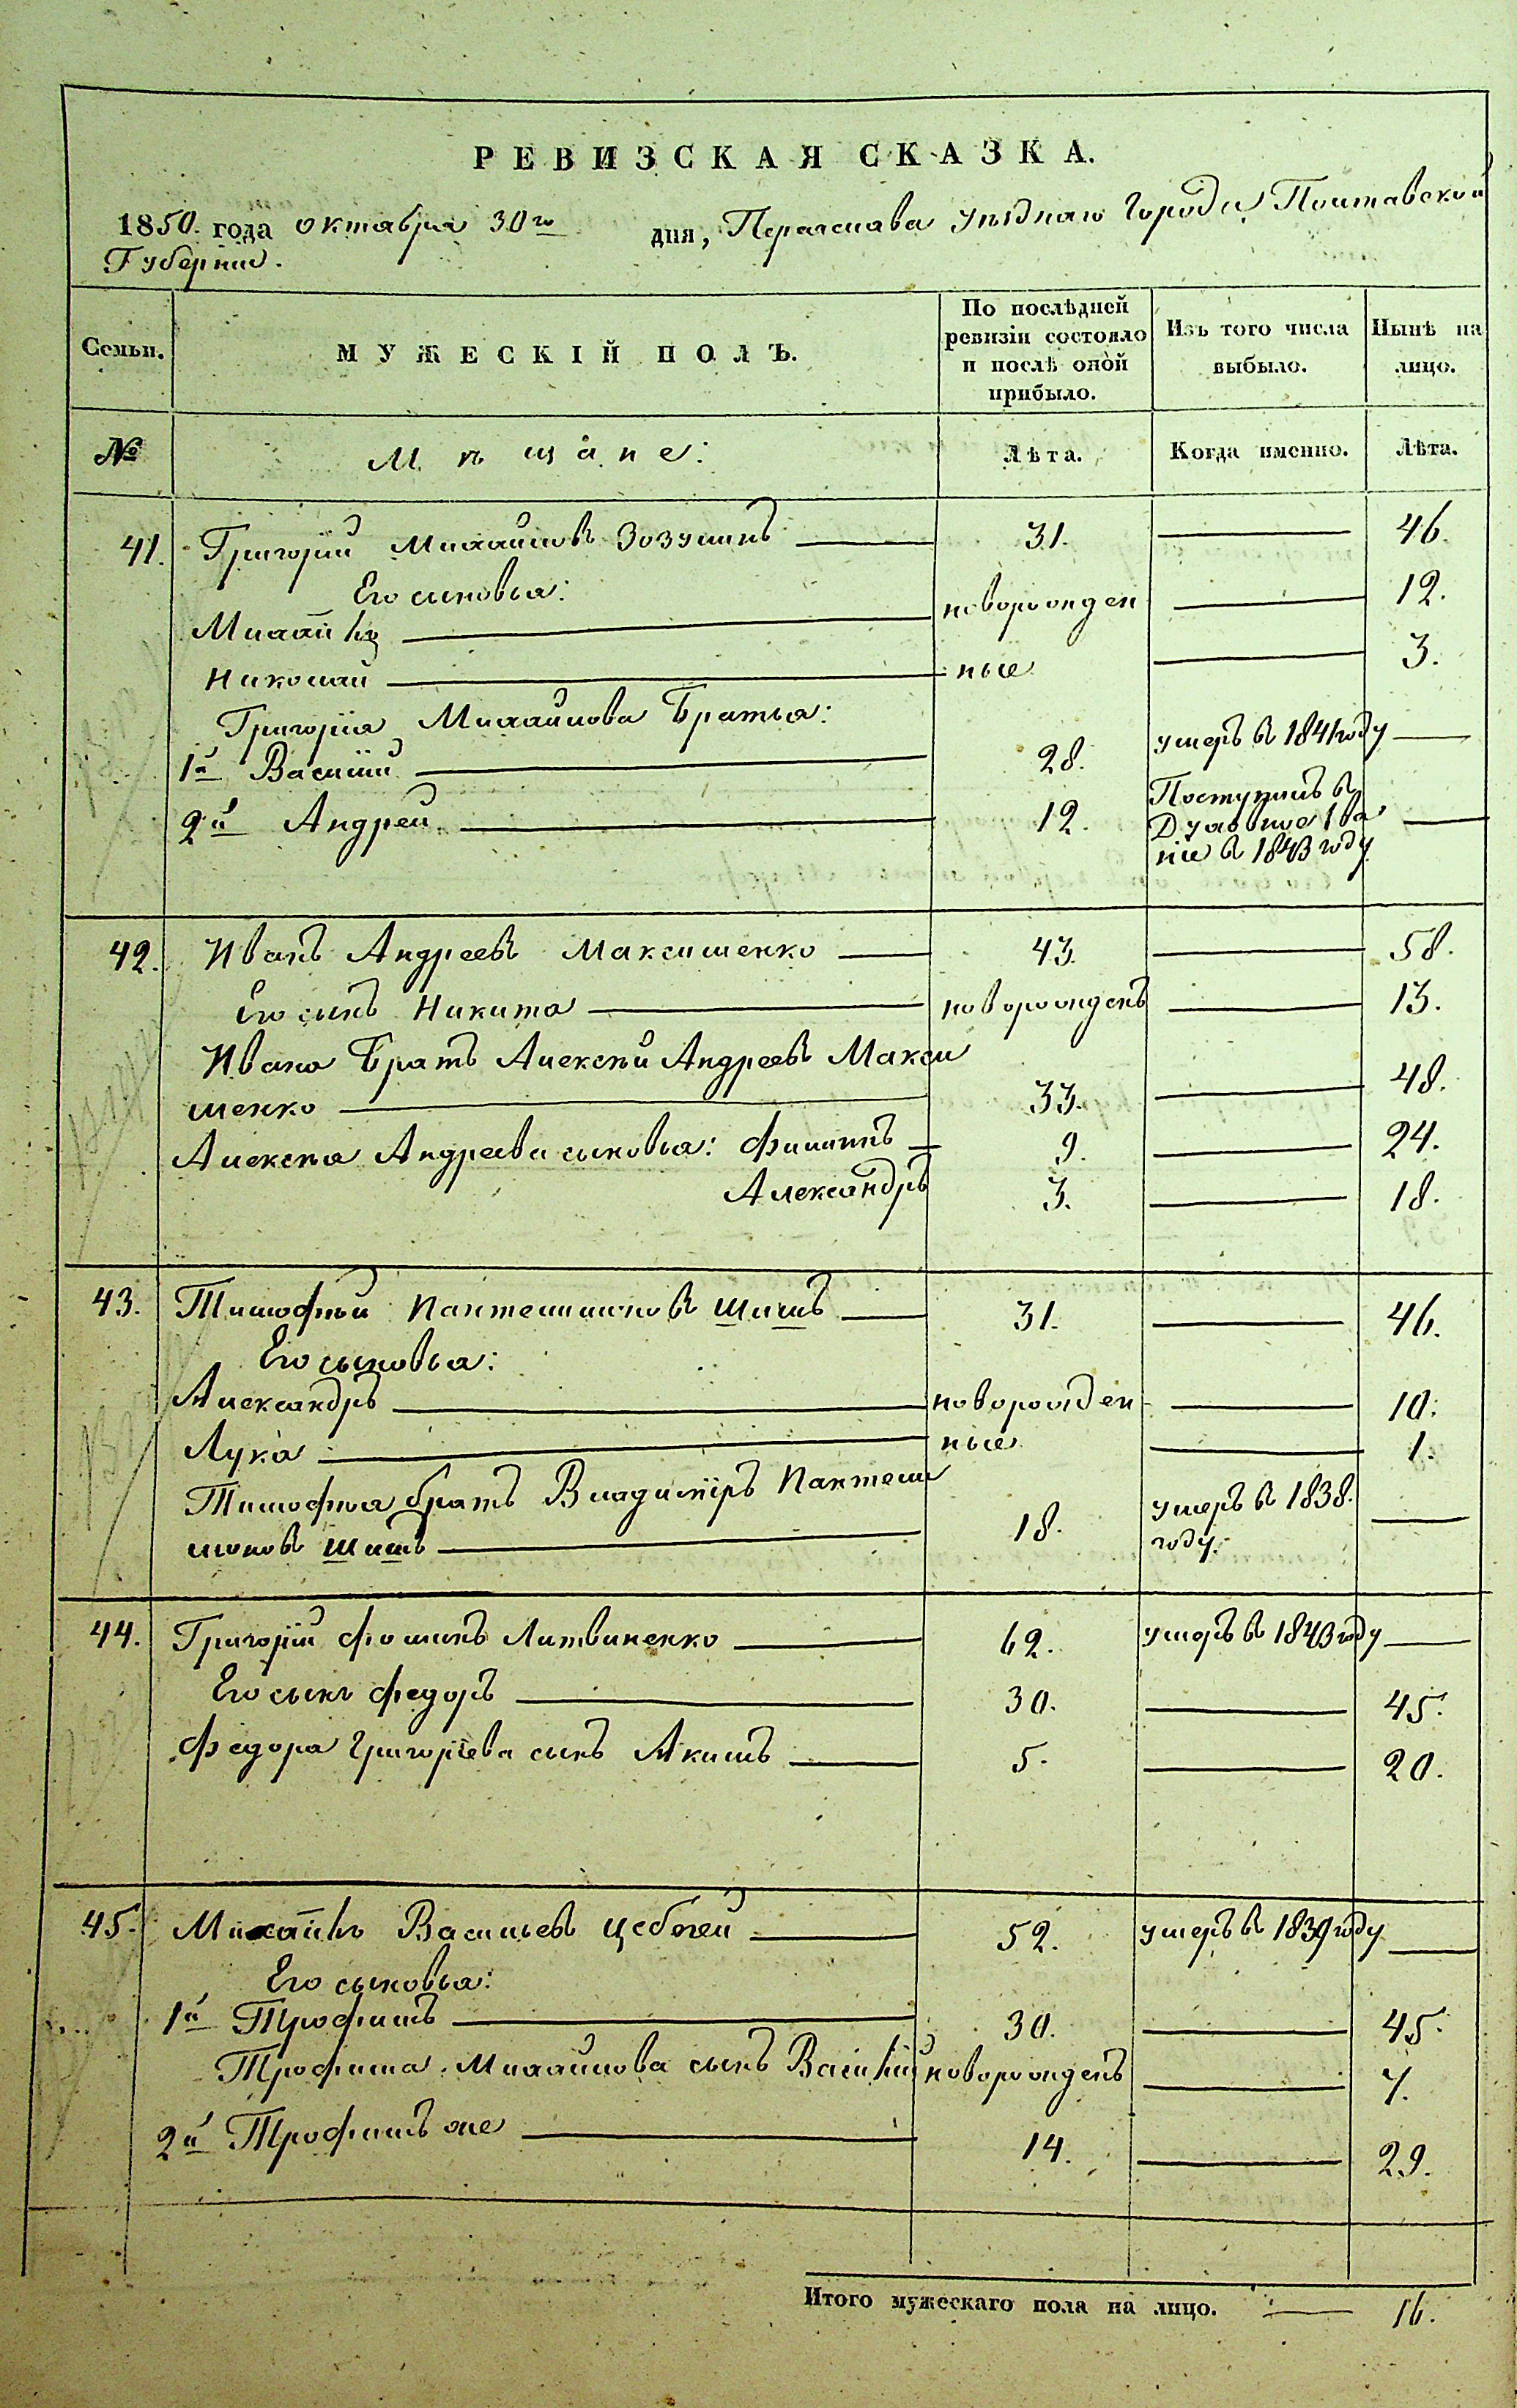 РЕВИЗСКАЯ СКАЗКА.
1850. года октября 30го дня, Переяслава уѣзднаго города Полтавской
Губерніи.
Семьи.
МУЖЕСКІЙ ПОЛЪ.
По послѣдней
ревизіи состояло
и послѣ оной
прибыло.
Изъ того числа
выбыло.
Ныне на
лицо.
№ Мѣщане: Лѣта. Когда именно. Лѣта.
41. Григорій Михайловъ Зозулинъ 31. 46.
Его сыновья:
Михаилъ новорожден 12.
Николай ные 3.
Григорія Михайлова Братья:
1й Василій 28. умеръ в 1841 году
2й Андрей 12. Поступилъ в
Духовное зва
ніе в 1843 году
42. Иванъ Андреевъ Максименко 43. 58.
Его сынъ Никита новорожденъ 13.
Ивана Братъ Алексѣй Андреевъ Макси
менко 33. 48.
Алексѣя Андреева сыновья: Филиппъ 9. 24.
Александръ 3. 18.
43. Тимофѣй Пантелимоновъ Шишъ 31. 46.
Его сыновья:
Александръ новорожден 10.
Лука ные 1.
Тимофѣя братъ Владиміръ Пантели
моновъ Шишъ 18. умеръ в 1838.
году.
44. Григорій Фоминъ Литвиненко 62. умеръ в 1843 году
Его сынъ Федоръ 30. 45.
Федора Григоріева сынъ Акимъ 5. 20.
45. Михаилъ Васильевъ 52. умеръ в 1839 году
Его сыновья:
1й Трофимъ 30. 45.
Трофима Михайлова сынъ Василій новорожденъ 7.
2й Трофимъ же 14. 29.
Итого мужескаго пола на лицо. 16.